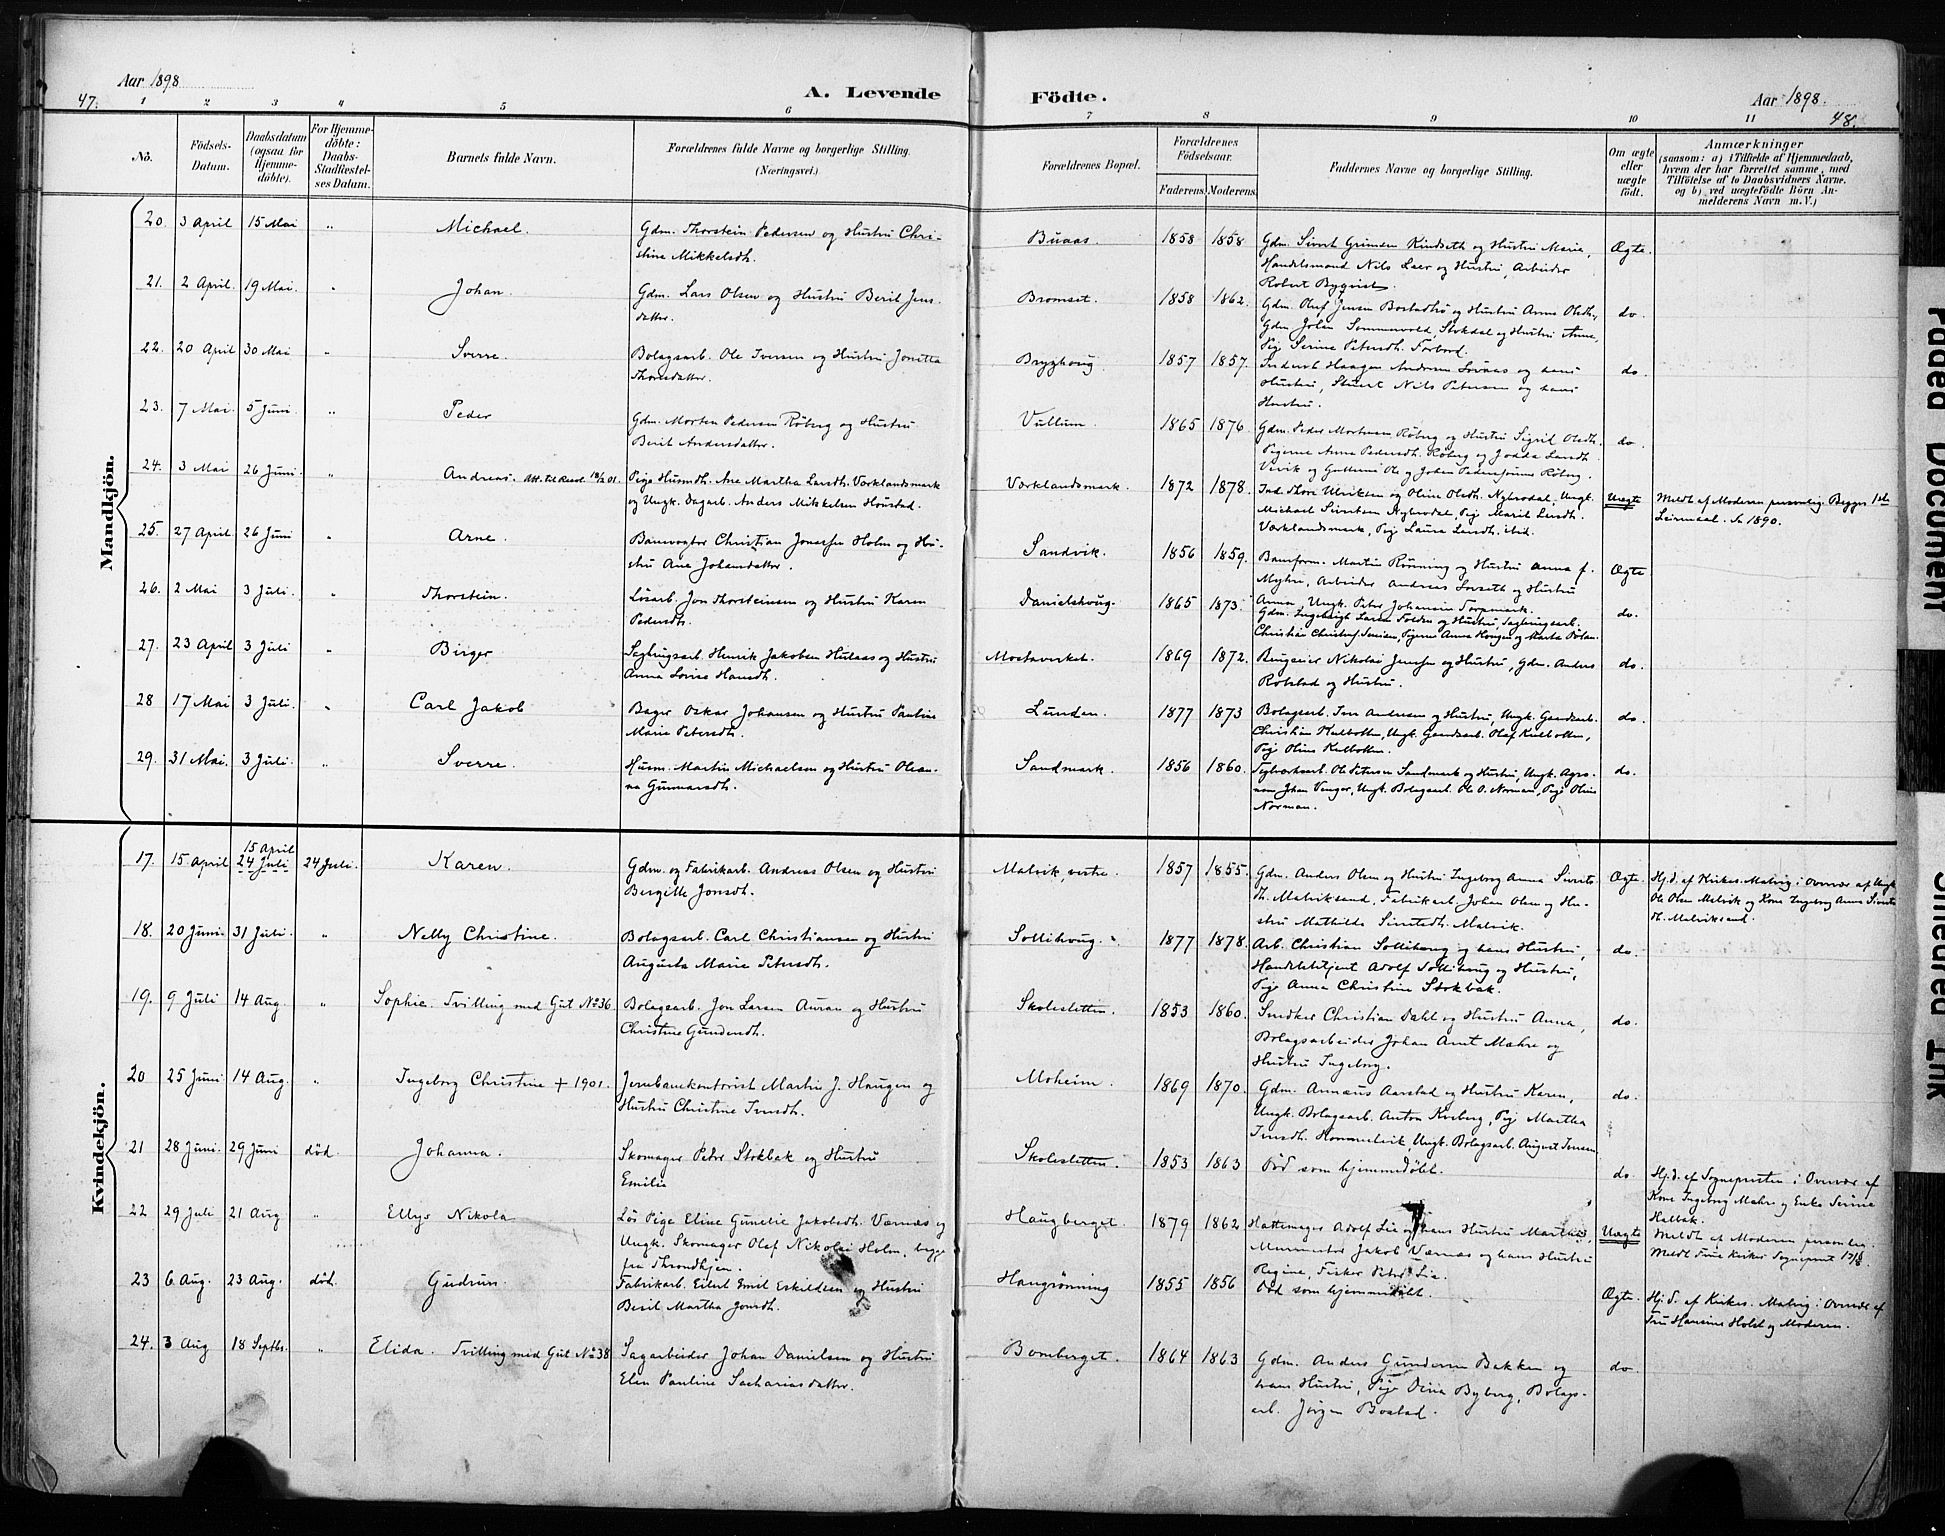 Aar 1898
47.
A. Levende
Födte.
Aar 1898.
48.
1 2 3 4 5 6 7 8 9 10 11
No.
Födsels-
Datum.
Daabsdatum
(ogsaa for
Hjemme-
döbte).
For Hjemme-
döbte:
Daabs-
Stadfæstel-
ses Datum.
Barnets fulde Navn.
Forældrenes fulde Navne og borgerlige Stilling.
(Næringsvei.)
Forældrenes Bopæl.
Forældrenes
Födselsaar.
Faderens. Moderens.
Faddernes Navne og borgerlige Stilling.
Om ægte
eller
uægte
födt.
Anmærkninger
(saasom: a) i Tilfælde af Hjemmedaab,
hvem der har forrettet samme, med
Tilföielse af to Daabsvidners Navne.
og b) ved uægtefödte Börn An-
melderens Navn m. V.)
Mandkjön.
20. 3 April 15 Mai " Michael. Gdm. Thorstein Pedersen og Hustru Chri-
stine Mikkelsdt.
Buaas. 1858 1858 Gdm. Sivert Grimsen Kindseth og Hustru Marie, Ægte.
Handelsmand Nils Laer og Hustru, Arbeider
Robert Byqvist.
21. 2 April. 19 Mai. " Johan. Gdm. Lars Olsen og Hustru Berit Jens
datter.
Bromset. 1858 1862. Gdm. Oluf Jensen Bostadhø og Hustru Anne Olsdt., do.
Gdm. Johan Sommervold, Stokdal og Hustru Anne,
Pige Serine Petersdt. Forbord.
22. 20 April 30 Mai " Sverre. Bolagsarb. Ole Iversen og Hustru Jonetta
Thomsdatter.
Brygghoug. 1857 1857. do.
Hustru, Nils Petersen og hans
Hustru.
23. 7 Mai. 5 Juni. " Peder Gdm. Morten Pedersen Røberg og Hustru
Berit Andersdatter.
Vullum. 1865 1876. Gdm. Peder Mortensen Røberg og Hustru Sigrid Olsdt. do.
Pigerne Anne Pedersdt. Røberg og Jodda Larsdt.
Vivik og Guttene Ole og Johan Røberg.
24. 3 Mai 26 Juni. " Andreas. Att. til Resol. Pige Husmdt. Ane Martha Larsdt. Værklandsmark
og Ungk. Dagarb. Anders Mikkelsen Hønstad.
Værklandsmark. 1872 1878. Ind. Thore Ulriksen og Oline Olsdt. Nybrodal, Ungk. Uægte Meldt af Moderen personlig. Begges 1ste
Michael Sivertsen Nybrodal, Pige Marit Larsdt. Leiermaal. Nr 1890.
Værklandsmark, Pige Laura Larsdt. ibid.
25. 27 April 26 Juni " Arne. Banevogter Christian Jonassen Holm og Hu-
stru Ane Johansdatter.
Sandvik. 1856 1859. Baneform. Martin Rønning og Hustru Anna f. Ægte
Myhre, Arbeider Andreas Sorseth og Hustru
Anna, Ungk. Peter Johansen Torpmark.
26. 2 Mai 3 Juli. " Thorstein. Løsarb. Jon Thorsteinsen og Hustru Karen
Pedersdt.
Danielshoug. 1865 1873. Gdm. Ingebrigt Larsen Folden og Hustru, Sagbrugsarb. do.
Christian Christofersen, Pigerne Anna Hougen og Marta Folan.
27. 23 April 3 Juli " Birger Sagbrugsarb. Henrik Jakobsen Hulaas og Hustru
Anna Lovise Hansdt.
Mostaverket. 1869 1872. Brugseier Nikolai Jenssen og Hustru, Gdm. Anders do.
Rotstad og Hustru.
28 17 Mai 3 Juli. " Carl Jakob Bager Oskar Johansen og Hustru Pauline
Marie Petersdt.
Lunden. 1877 1873 Bolagsarb. Iver Andersen og Hustru, Ungk. Gaardsarb. do.
Christian Kulbotten, Ungk. Gaardsarb. Olaf Kulbotten,
Pige Oline Kulbotten.
29. 31 Mai. 3 Juli. " Sverre. Husm. Martin Michaelsen og Hustru Olean-
na Gunnarsdt.
Sandmark. 1856 1860. Teglværksarb. Ole Petersen Sandmark og Hustru, Ungk. Agro- do.
nom Johan Venger, Ungk. Bolagsarb. Ole O. Norman, Pige Oline
Norman.
Kvindekjön.
17. 15 April 15 April
24 Juli 24 Juli. Karen. Gdm. og Fabrikarb. Andreas Olsen og Hustru
Bergitte Jonsdt.
Malvik, vestre. 1857 1855. Gdm. Anders Olsen og Hustru Ingeborg Anna Siverts- Ægte. Hj.d. af Kirkes. Malvig i Overvær af Ungk.
dt. Malviksand, Fabrikarb. Johan Olsen og Hu- Ole Olsen Malvik og Kone Ingeborg Anna Siverts
stru Mathilde Sivertsdt. Malvik. dt. Malviksand.
18. 20 Juni 31 Juli. " Nelly Christine. Bolagsarb. Carl Christiansen og Hustru
Augusta Marie Petersdt.
Sollihoug. 1877 1878. Arb. Christian Sollihoug og hans Hustru, do.
Handelsbetjent Adolf Sollihoug og Hustru,
Pige Anna Christine Stokbak.
19. 9 Juli 14 Aug. " Sophie. Tvilling med Gut No 36 Bolagsarb. Jon Larsen Auran og Hustru
Christine Gundersdt.
Skoleslettin. 1853 1860. Snedker Christian Dahl og Hustru Anna, do.
Bolagsarbeider Johan Arnt Mæhre og
Hustru Ingeborg.
20 25 Juni 14 Aug. " Ingeborg Christine + 1901. Jernbanekontorist Martin J. Haugen og
Hustru Christine Iversdt.
Moheim. 1869 1870. Gdm. Annæus Aarstad og Hustru Karen, do.
Ungk. Bolagsarb. Anton Kvberg, Pige Martha
Iversdt. Hommelvik, Ungk. Bolagsarb. August Jensen
21 28 Juni 29 Juni død. Johanna. Skomager Peter Stokbak og Hustru
Emilie
Skoleslettin. 1853 1863 Død som hjemmedøbt. do. Hj.d. af Sognepresten i Overvær af
Kone Ingeborg Mæhre og Enke Serine
Kalbak.
22 29 Juli 21 Aug " Ellys Nikola Løs Pige Eline Gunelie Jakobsdt. Værnæs og
Ungk. Skomager Olaf Nikolai Holm, begge
fra Throndhjem.
Haugberget. 1879 1862 Hattemager Adolf Lie og hans Hustru Marthea, Uægte Meldt af Moderen personlig.
Murmester Jakob Værnæs og hans Hustru Meldt Frue Kirkes Sogneprest
Regine, Fisker Peter Lie.
23 6 Aug. 23 Aug. død. Gudrun. Fabrikarb. Eilert Emil Eskildsen og Hustru
Berit Martha Jonsdt.
Haugrønning 1855 1856 Død som hjemmedøbt. Ægte. Hj.d. af Kirkes. Malvig i Overvær af
Fru Hansine Holst og Moderen.
24. 3 Aug 18 Septbr. " Elida. Tvilling med Gut No 38 Sagarbeider Johan Danielsen og Hustru
Elen Pauline Sachariasdatter.
Bomberget. 1864 1863 Gdm. Anders Gundersen Bakken og do.
hans Hustru, Pige Dina Byberg, Bolags-
arb. Jørgen Bostad.
Faded Document
Smeared Ink